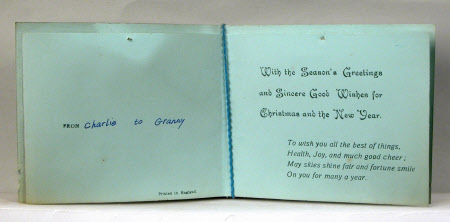 FROM Charlie to Granny
Printed in England
With the Season's Greetings
and Sincere Good Wishes for
Christmas and the New Year.
To wish you all the best of things,
Health, Joy, and much good cheer;
May skies shine fair and fortune smile
On you for many a year.